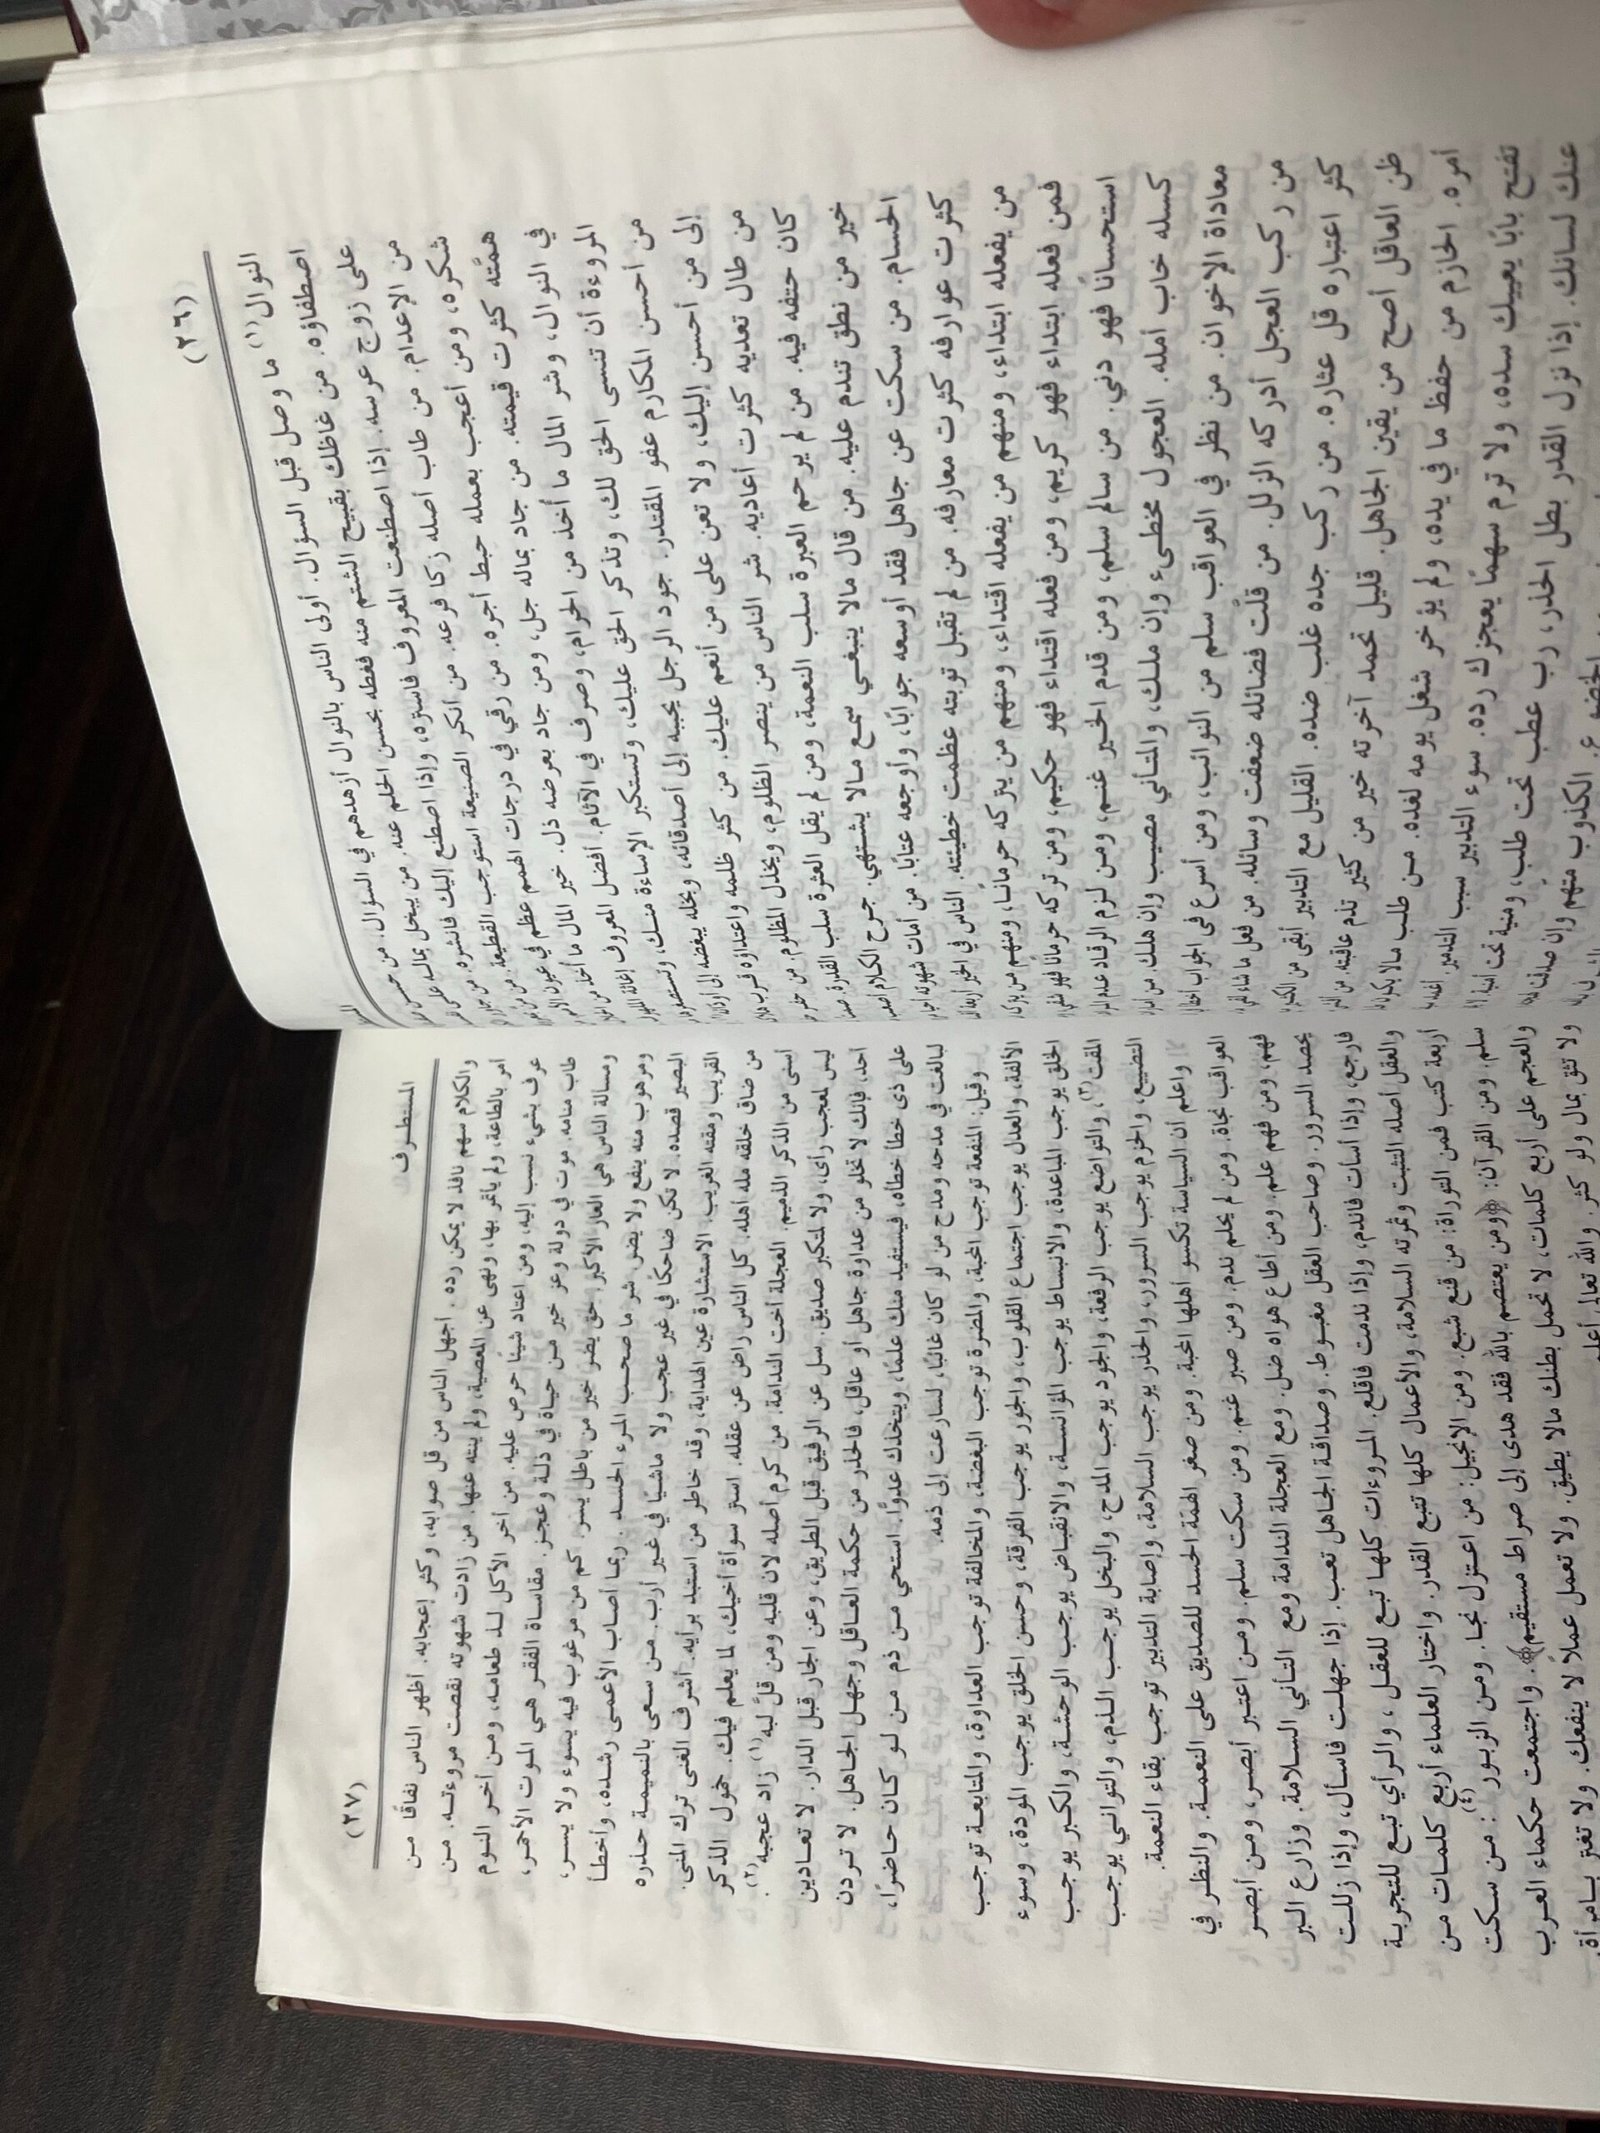 (٢٦)
النوال(١) ما وصل قبل السؤال. أولى الناس بالنوال أزهدهم في السؤال. من حسن
اصطفاؤه. من غاظك بقبيح الشتم منه فغظه بحسن الحلم عنه. من يبخل بماله على
على زوج عرسه. إذا اصطنعت المعروف فاستره، وإذا اصطنع إليك فانشره. من
من الإعدام. من طاب أصله زكا فرعه. من أنكر الصنيعة استوجب القطيعة. من
شكره، ومن أعجب بعمله حبط أجره. من رقي في درجات الهمم عظم في عيون
همَّته كثرت قيمته. من جاد بماله جل، ومن جاد بعرضه ذل. خير المال ما أخذ من
في النوال، وشر المال ما أخذ من الحرام، وصرف في الآثام. أفضل المعروف إغاثة
المروءة أن تنسى الحق لك، وتذكر الحق عليك، وتستكبر الإساءة منك، وتستصغر
من أحسن المكارم عفو المقتدر. جود الرجل يحببه إلى أضداده، وبخله يبغضه إلى
إلى من أحسن إليك، ولا تعن على من أنعم عليك. من كثر ظلمه واعتداؤه قرب
من طال تعديه كثرت أعاديه. شر الناس من ينصر الظلوم، ويخذل المظلوم. من حفر
كان حتفه فيه. من لم يرحم العبرة سلب النعمة، ومن لم يقل العثرة سلب القدرة.
خير من نطق تندم عليه. من قال مالا ينبغي سمع مالا يشتهي. جرح الكلام أصعب
الحسام. من سكت عن جاهل فقد أوسعه جوابًا، وأوجعه عتابًا. من أمات شهوته
كثرت عوارفه كثرت معارفه. من لم تقبل توبته عظمت خطيئته. الناس في الخير أربعة
من يفعله ابتداء، ومنهم من يفعله اقتداء، ومنهم من يتركه حرمانًا، ومنهم من يتركه
فمن فعله ابتداء فهو كريم، ومن فعله اقتداء فهو حكيم، ومن تركه حرمانًا فهو شقي
استحسانًا فهو دني. من سالم سلم، ومن قدم الخير غنم، ومن لزم الرقاد عدم
كسله خاب أمله. العجول مخطىء وإن ملك، والمتأني مصيب وإن هلك. من
معاداة الإخوان. من نظر في العواقب سلم من النوائب، ومن أسرع في الجواب
من ركب العجل أدركه الزلل. من قلَّت فضائله ضعفت وسائله. من فعل ما شاء
كثر اعتباره قل عثاره. من ركب جده غلب ضده. القليل مع التدبير أبقى من الكثير
ظن العاقل أصح من يقين الجاهل. قليل تحمد آخرته خير من كثير تذم عاقبته. من
أمره. الحازم من حفظ ما في يده، ولم يؤخر شغل يومه لغده. من طلب مالا يكون
تفتح بابًا يعييك سده، ولا ترم سهمًا يعجزك رده. سوء التدبير سبب التدمير.
عنك لسانك. إذا نزل القدر بطل الحذر، رب عطب تحت طلب، ومنية تحت أمنية.
الكذوب متهم وإن صدقت
المستطرف
(٢٧)
والكلام سهم نافذ لا يمكن رده. أجهل الناس من قل صوابه، وكثر إعجابه. أظهر الناس نفاقًا من
أمر بالطاعة، ولم يأتمر بها، ونهى عن المعصية، ولم ينته عنها. من زادت شهوته نقصت مروءته. من
عرف بشيء نسب إليه، ومن اعتاد شيئًا حرص عليه. من أخر الأكل لذ طعامه، ومن أخر النوم
طاب منامه. موت في دولة وعز خير من حياة في ذلة وعجز. مقاساة الفقر هي الموت الأحمر،
ومسألة الناس هي العار الأكبر. حق يضر خير من باطل يسر. كم من مرغوب فيه يسوء ولا يسر،
ومرهوب منه ينفع ولا يضر. شر ما صحب المرء الحسد. ربما أصاب الأعمى رشده، وأخطأ
البصير قصده. لا تكن ضاحكًا في غير عجب ولا ماشيًا في غير أرب. من سعى بالنميمة حذره
القريب ومقته الغريب. الاستشارة عين الهداية، وقد خاطر من استبد برأيه. أشرف الغنى ترك المنى.
من ضاق خلقه مله أهله. كل الناس راض عن عقله. استر سوأة أخيك، لما يعلم فيك. خمول الذكر
أسنى من الذكر الذميم. العجلة أخت الندامة. من كرم أصله لان قلبه ومن قلَّ لبه(١) زاد عجبه(٢).
ليس لمعجب رأى، ولا لمتكبر صديق. سل عن الرفيق قبل الطريق، وعن الجار قبل الدار. لا تعادين
أحد، فإنك لا تخلو من عداوة جاهل أو عاقل، فالحذر من حكمة العاقل وجهل الجاهل. لا تردن
على ذى خطأ خطأه، فيستفيد منك علمًا، ويتخذك عدوًا. استحي من ذم من لو كان حاضرًا،
لبالغت في مدحه ومدح من لو كان غائبًا، لسارعت إلى ذمه.
وقيل: المنفعة توجب المحبة، والمضرة توجب البغضة، والمخالفة توجب العداوة، والمتابعة توجب
الألفة، والعدل يوجب اجتماع القلوب، والجور يوجب الفرقة، وحسن الخلق يوجب المودة، وسوء
الخلق يوجب المباعدة، والانبساط يوجب المؤانسة، والانقباض يوجب الوحشة، والكبر يوجب
المقت(٣)، والتواضع يوجب الرفعة، والجود يوجب المدح، والبخل يوجب الذم، والتواني يوجب
التضييع، والحزم يوجب السرور، والحذر يوجب السلامة، وإصابة التدبير توجب بقاء النعمة.
واعلم أن السياسة تكسو أهلها المحبة. ومن صغر الهمَّة الحسد للصديق على النعمة. والنظر في
العواقب نجاة. ومن لم يحلم ندم. ومن صبر غنم. ومن سكت سلم. ومن اعتبر أبصر، ومن أبصر
فهم، ومن فهم علم. ومن أطاع هواه ضل. ومع العجلة الندامة ومع التأني السلامة. وزارع البر
يحصد السرور. وصاحب العقل مغبوط. وصداقة الجاهل تعب. إذا جهلت فاسأل، وإذا زللت
فارجع، وإذا أسأت فاندم، وإذا ندمت فاقلع. المروءات كلها تبع للعقل، والرأي تبع للتجربة
والعقل أصله التثبت وثمرته السلامة، والأعمال كلها تتبع القدر. واختار العلماء أربع كلمات من
أربعة كتب فمن التوراة: من قنع شبع. ومن الإنجيل: من اعتزل نجا. ومن الزبور(٤): من سكت
سلم. ومن القرآن: ﴿ومن يعتصم بالله فقد هدى إلى صراط مستقيم﴾. واجتمعت حكماء العرب
والعجم على أربع كلمات، لا تحمل بطنك مالا يطيق. ولا تعمل عملاً لا ينفعك. ولا تغتر بامرأة.
ولا تثق بمال ولو كثر. والله تعالى أعلم